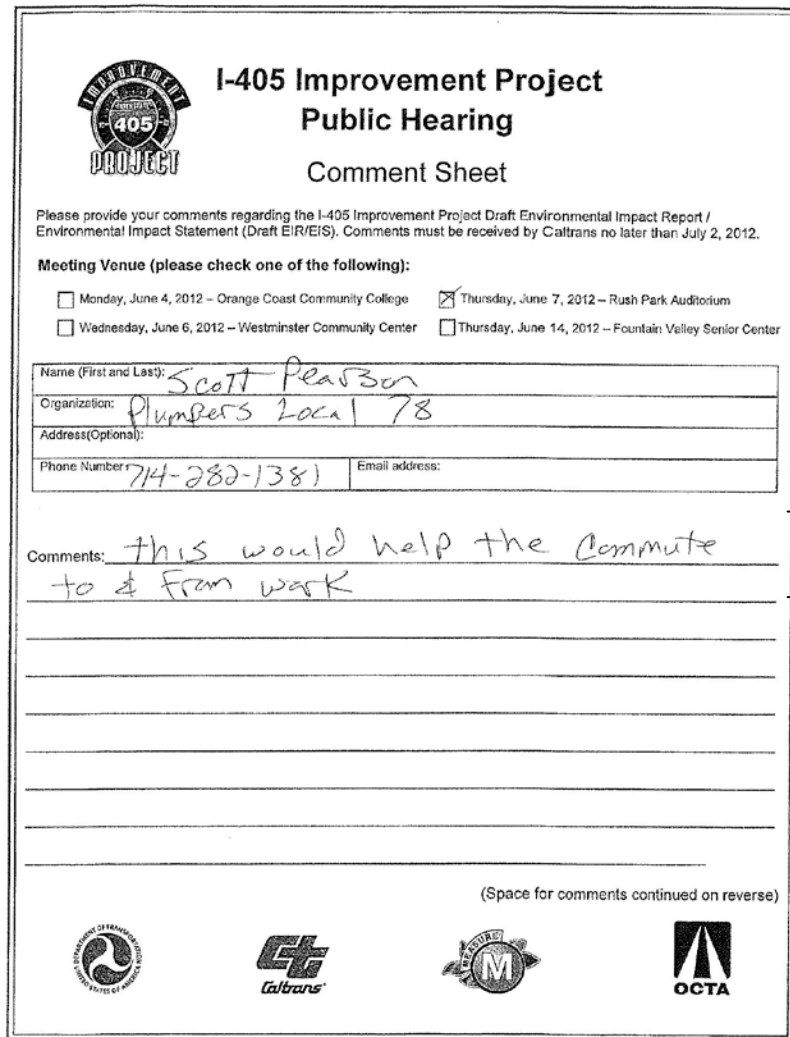 I-405 Improvement Project
Public Hearing
Comment Sheet
IMPROVEMENT
405
PROJECT
Please provide your comments regarding the I-405 Improvement Project Draft Environmental Impact Report /
Environmental Impact Statement (Draft EIR/EIS). Comments must be received by Caltrans no later than July 2, 2012.
Meeting Venue (please check one of the following):
Monday, June 4, 2012 – Orange Coast Community College
Thursday, June 7, 2012 – Rush Park Auditorium
Wednesday, June 6, 2012 – Westminster Community Center
Thursday, June 14, 2012 – Fountain Valley Senior Center
Name (First and Last): Scott Pearson
Organization: Plumbers Local 78
Address(Optional):
Phone Number: 714-282-1381
Email address:
Comments: this would help the Commute
to & from work
(Space for comments continued on reverse)
DEPARTMENT OF TRANSPORTATION
UNITED STATES OF AMERICA
Caltrans
MEASURE
M
OCTA